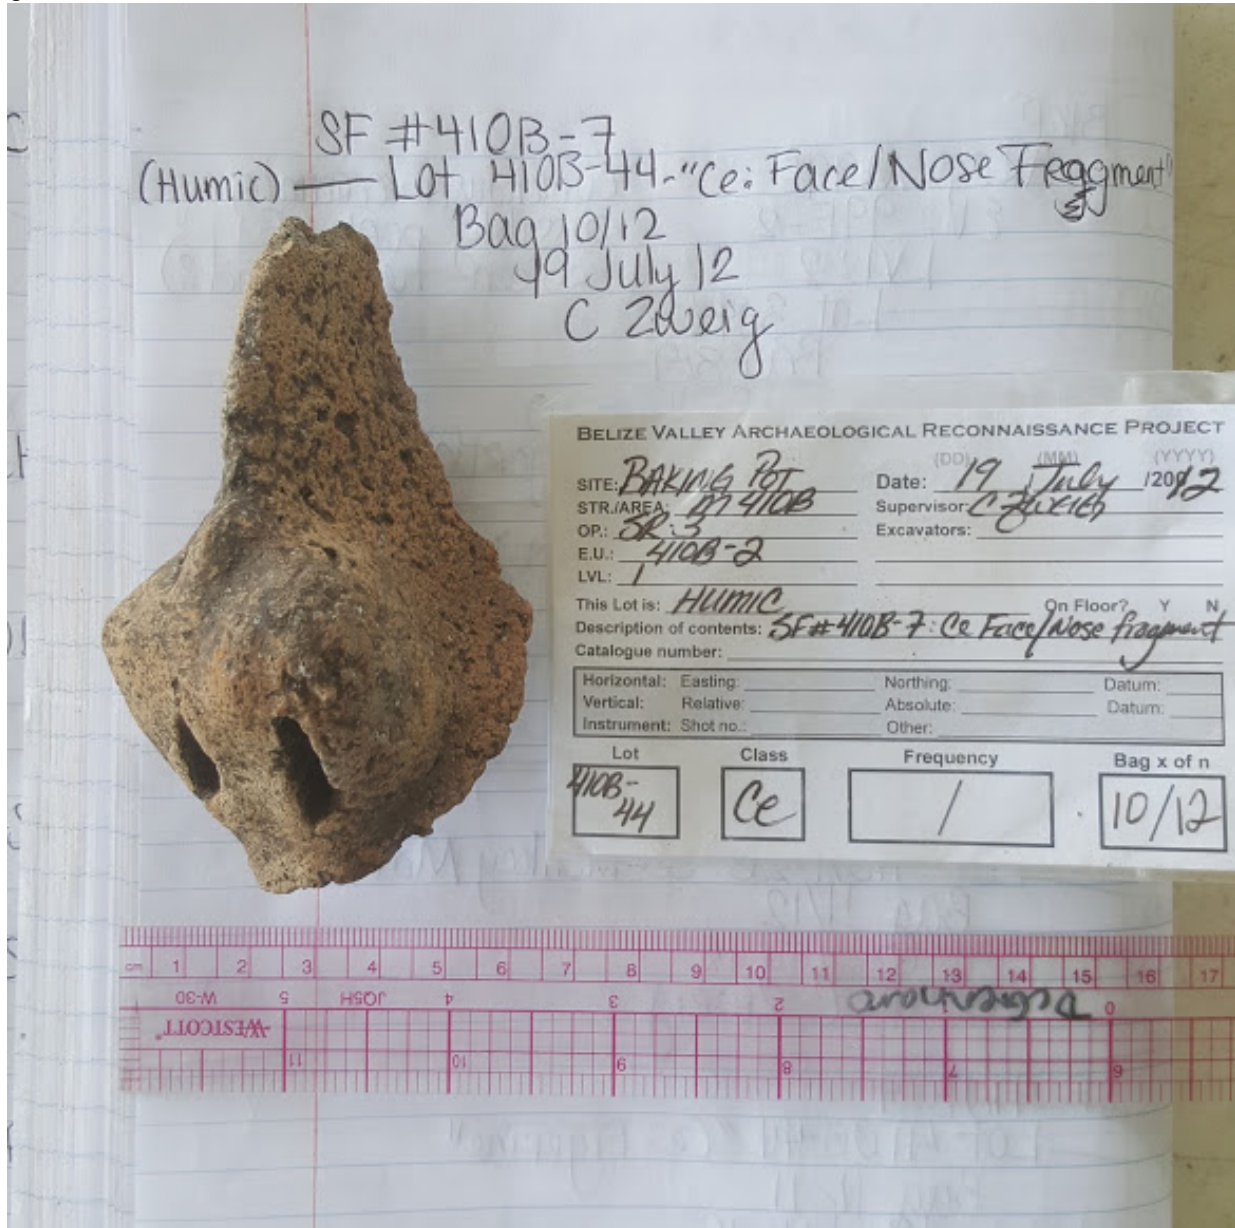 SF #410B-7
(Humic) — Lot 410B-44-"Ce: Face/Nose Fragment"
Bag 10/12
19 July 12
C Zweig
BELIZE VALLEY ARCHAEOLOGICAL RECONNAISSANCE PROJECT
(DD) (MM) (YYYY)
SITE: BAKING POT Date: 19 July /2012
STR./AREA: M410B Supervisor: C Zweig
OP.: SR:3 Excavators:
E.U.: 410B-2
LVL: 1
This Lot is: HUMIC On Floor? Y N
Description of contents: SF#410B-7: Ce Face/Nose fragment
Catalogue number:
Horizontal: Easting: Northing: Datum:
Vertical: Relative: Absolute: Datum:
Instrument: Shot no.: Other:
Lot Class Frequency Bag x of n
410B-44 Ce 1 10/12
cm 1 2 3 4 5 6 7 8 9 10 11 12 13 14 15 16 17
W-30 5 JQSH 4 3 2 0
WESTCOTT
11 10 9 8 7 6